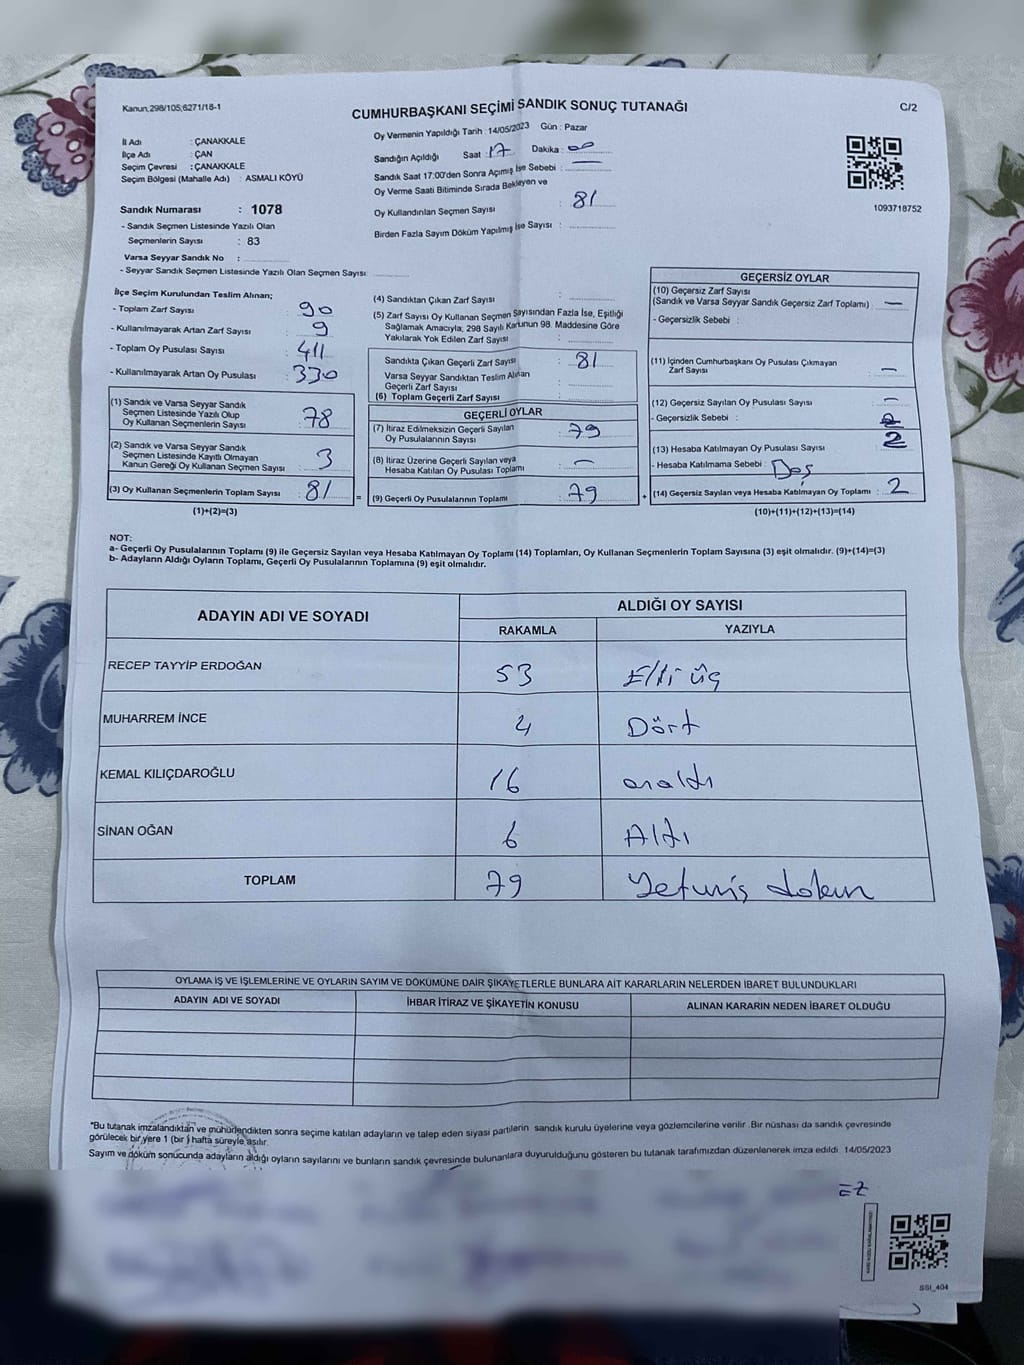 Kanun,298/105,6271/18-1
CUMHURBAŞKANI SEÇİMİ SANDIK SONUÇ TUTANAĞI
C/2
İl Adı : ÇANAKKALE
İlçe Adı : ÇAN
Seçim Çevresi : ÇANAKKALE
Seçim Bölgesi (Mahalle Adı) : ASMALI KÖYÜ
Sandık Numarası : 1078
- Sandık Seçmen Listesinde Yazılı Olan
Seçmenlerin Sayısı : 83
Varsa Seyyar Sandık No :
- Seyyar Sandık Seçmen Listesinde Yazılı Olan Seçmen Sayısı
Oy Vermenin Yapıldığı Tarih : 14/05/2023 Gün : Pazar
Sandığın Açıldığı Saat : 17 Dakika : 00
Sandık Saat 17:00'den Sonra Açımış İse Sebebi : —
Oy Verme Saati Bitiminde Sırada Bekleyen ve
Oy Kullandırılan Seçmen Sayısı : 81
Birden Fazla Sayım Döküm Yapılmış İse Sayısı :
1093718752
İlçe Seçim Kurulundan Teslim Alınan;
- Toplam Zarf Sayısı : 90
- Kullanılmayarak Artan Zarf Sayısı : 9
- Toplam Oy Pusulası Sayısı : 411
- Kullanılmayarak Artan Oy Pusulası : 330
(1) Sandık ve Varsa Seyyar Sandık
Seçmen Listesinde Yazılı Olup
Oy Kullanan Seçmenlerin Sayısı : 78
(2) Sandık ve Varsa Seyyar Sandık
Seçmen Listesinde Kayıtlı Olmayan
Kanun Gereği Oy Kullanan Seçmen Sayısı : 3
(3) Oy Kullanan Seçmenlerin Toplam Sayısı : 81 =
(1)+(2)=(3)
(4) Sandıktan Çıkan Zarf Sayısı :
(5) Zarf Sayısı Oy Kullanan Seçmen Sayısından Fazla İse, Eşitliği
Sağlamak Amacıyla; 298 Sayılı Kanunun 98. Maddesine Göre
Yakılarak Yok Edilen Zarf Sayısı :
Sandıkta Çıkan Geçerli Zarf Sayısı : 81
Varsa Seyyar Sandıktan Teslim Alınan
Geçerli Zarf Sayısı :
(6) Toplam Geçerli Zarf Sayısı :
GEÇERLİ OYLAR
(7) İtiraz Edilmeksizin Geçerli Sayılan
Oy Pusulalarının Sayısı : 79
(8) İtiraz Üzerine Geçerli Sayılan veya
Hesaba Katılan Oy Pusulası Toplamı : —
(9) Geçerli Oy Pusulalarının Toplamı : 79 +
GEÇERSİZ OYLAR
(10) Geçersiz Zarf Sayısı
(Sandık ve Varsa Seyyar Sandık Geçersiz Zarf Toplamı) : —
- Geçersizlik Sebebi :
(11) İçinden Cumhurbaşkanı Oy Pusulası Çıkmayan
Zarf Sayısı : —
(12) Geçersiz Sayılan Oy Pusulası Sayısı : —
- Geçersizlik Sebebi :
(13) Hesaba Katılmayan Oy Pusulası Sayısı : 2
- Hesaba Katılmama Sebebi :
(14) Geçersiz Sayılan veya Hesaba Katılmayan Oy Toplamı : 2
(10)+(11)+(12)+(13)=(14)
NOT:
a- Geçerli Oy Pusulalarının Toplamı (9) ile Geçersiz Sayılan veya Hesaba Katılmayan Oy Toplamı (14) Toplamları, Oy Kullanan Seçmenlerin Toplam Sayısına (3) eşit olmalıdır. (9)+(14)=(3)
b- Adayların Aldığı Oyların Toplamı, Geçerli Oy Pusulalarının Toplamına (9) eşit olmalıdır.
ADAYIN ADI VE SOYADI ALDIĞI OY SAYISI
RAKAMLA YAZIYLA
RECEP TAYYİP ERDOĞAN 53 Elli üç
MUHARREM İNCE 4 Dört
KEMAL KILIÇDAROĞLU 16 onaltı
SİNAN OĞAN 6 Altı
TOPLAM 79 Yetmiş dokuz
OYLAMA İŞ VE İŞLEMLERİNE VE OYLARIN SAYIM VE DÖKÜMÜNE DAİR ŞİKAYETLERLE BUNLARA AİT KARARLARIN NELERDEN İBARET BULUNDUKLARI
ADAYIN ADI VE SOYADI İHBAR İTİRAZ VE ŞİKAYETİN KONUSU ALINAN KARARIN NEDEN İBARET OLDUĞU
"Bu tutanak imzalandıktan ve mühürlendikten sonra seçime katılan adayların ve talep eden siyasi partilerin sandık kurulu üyelerine veya gözlemcilerine verilir. Bir nüshası da sandık çevresinde
görülecek bir yere 1 (bir) hafta süreyle asılır.
Sayım ve döküm sonucunda adayların aldığı oyların sayılarını ve bunların sandık çevresinde bulunanlara duyurulduğunu gösteren bu tutanak tarafımızdan düzenlenerek imza edildi. 14/05/2023
SSI_404